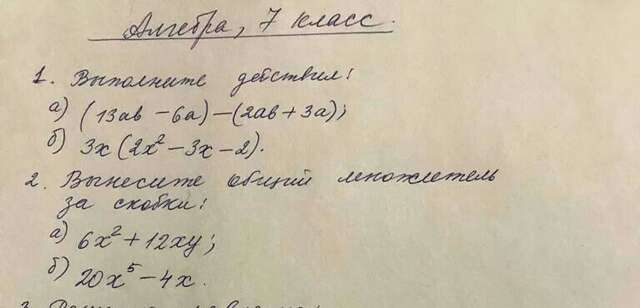 Алгебра, 7 класс.
1. Выполните действия:
а) (13ab – 6a) – (2ab + 3a);
б) 3x (2x² – 3x – 2).
2. Вынесите общий множитель
за скобки:
а) 6x² + 12xy;
б) 20x⁵ – 4x.